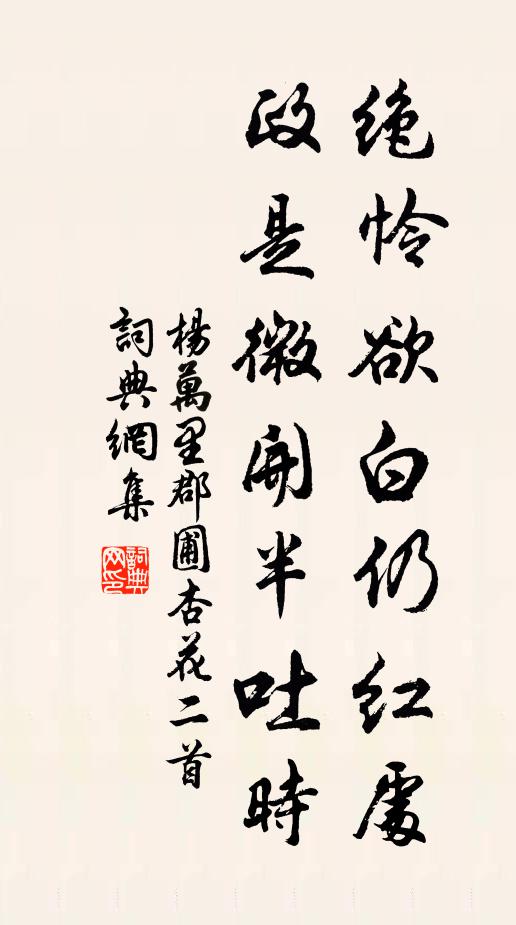 絶怜欲白仍紅處
政是微開半吐時
楊萬里郡圃杏花二首
詞典網集
詞典网印